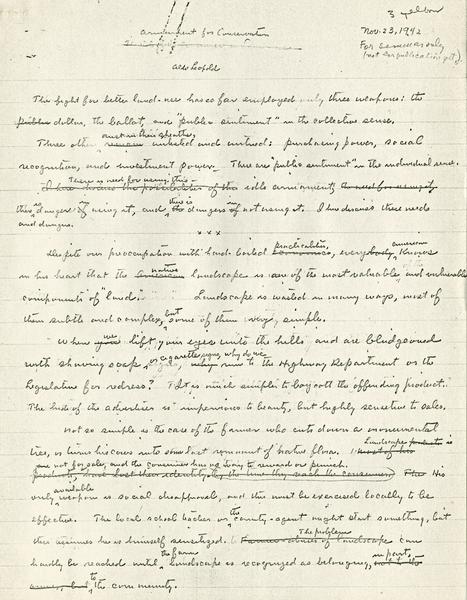 3 yellow
Nov. 23, 1942
For seminar only
(not for publication yet)
Armament for Conservation
Aldo Leopold
The fight for better land-use has so far employed only three weapons: the
public dollar, the ballot, and "public sentiment" in the collective sense.
Three others rust in their sheaths, unused and untried: purchasing power, social
recognition, and investment power. These are "public sentiment" in the individual sense.
There is need for using this
I here discuss the possibilities of this idle armament,
there is danger of using it, and there is danger of not using it. I here discuss these needs
and dangers.
x x x
Despite our preoccupation with hard-boiled practicalities, every American knows
in his heart that the native landscape is one of the most valuable and vulnerable
components of "land." Landscape is wasted in many ways, most of
them subtle and complex, but some of them very simple.
When we lift our eyes unto the hills and are bludgeoned
with shaving soap or cigarette signs, why do we run to the Highway Department or the
Legislature for redress? It is much simpler to boycott the offending product.
The hide of the advertiser is impervious to beauty, but highly sensitive to sales.
Not so simple is the case of the farmer who cuts down a monumental
tree, or turns his cows into some last remnant of native flora. Landscape products
are not for sale, and the consumer has no way to reward or punish.
products have lost their identity by the time they reach the consumer. His
only available weapon is social disapproval, and this must be exercised locally to be
effective. The local school teacher or county-agent might start something, but
this assumes he is himself sensitized. The problem can
hardly be reached until the farm landscape is recognized as belonging, in part,
to the community.